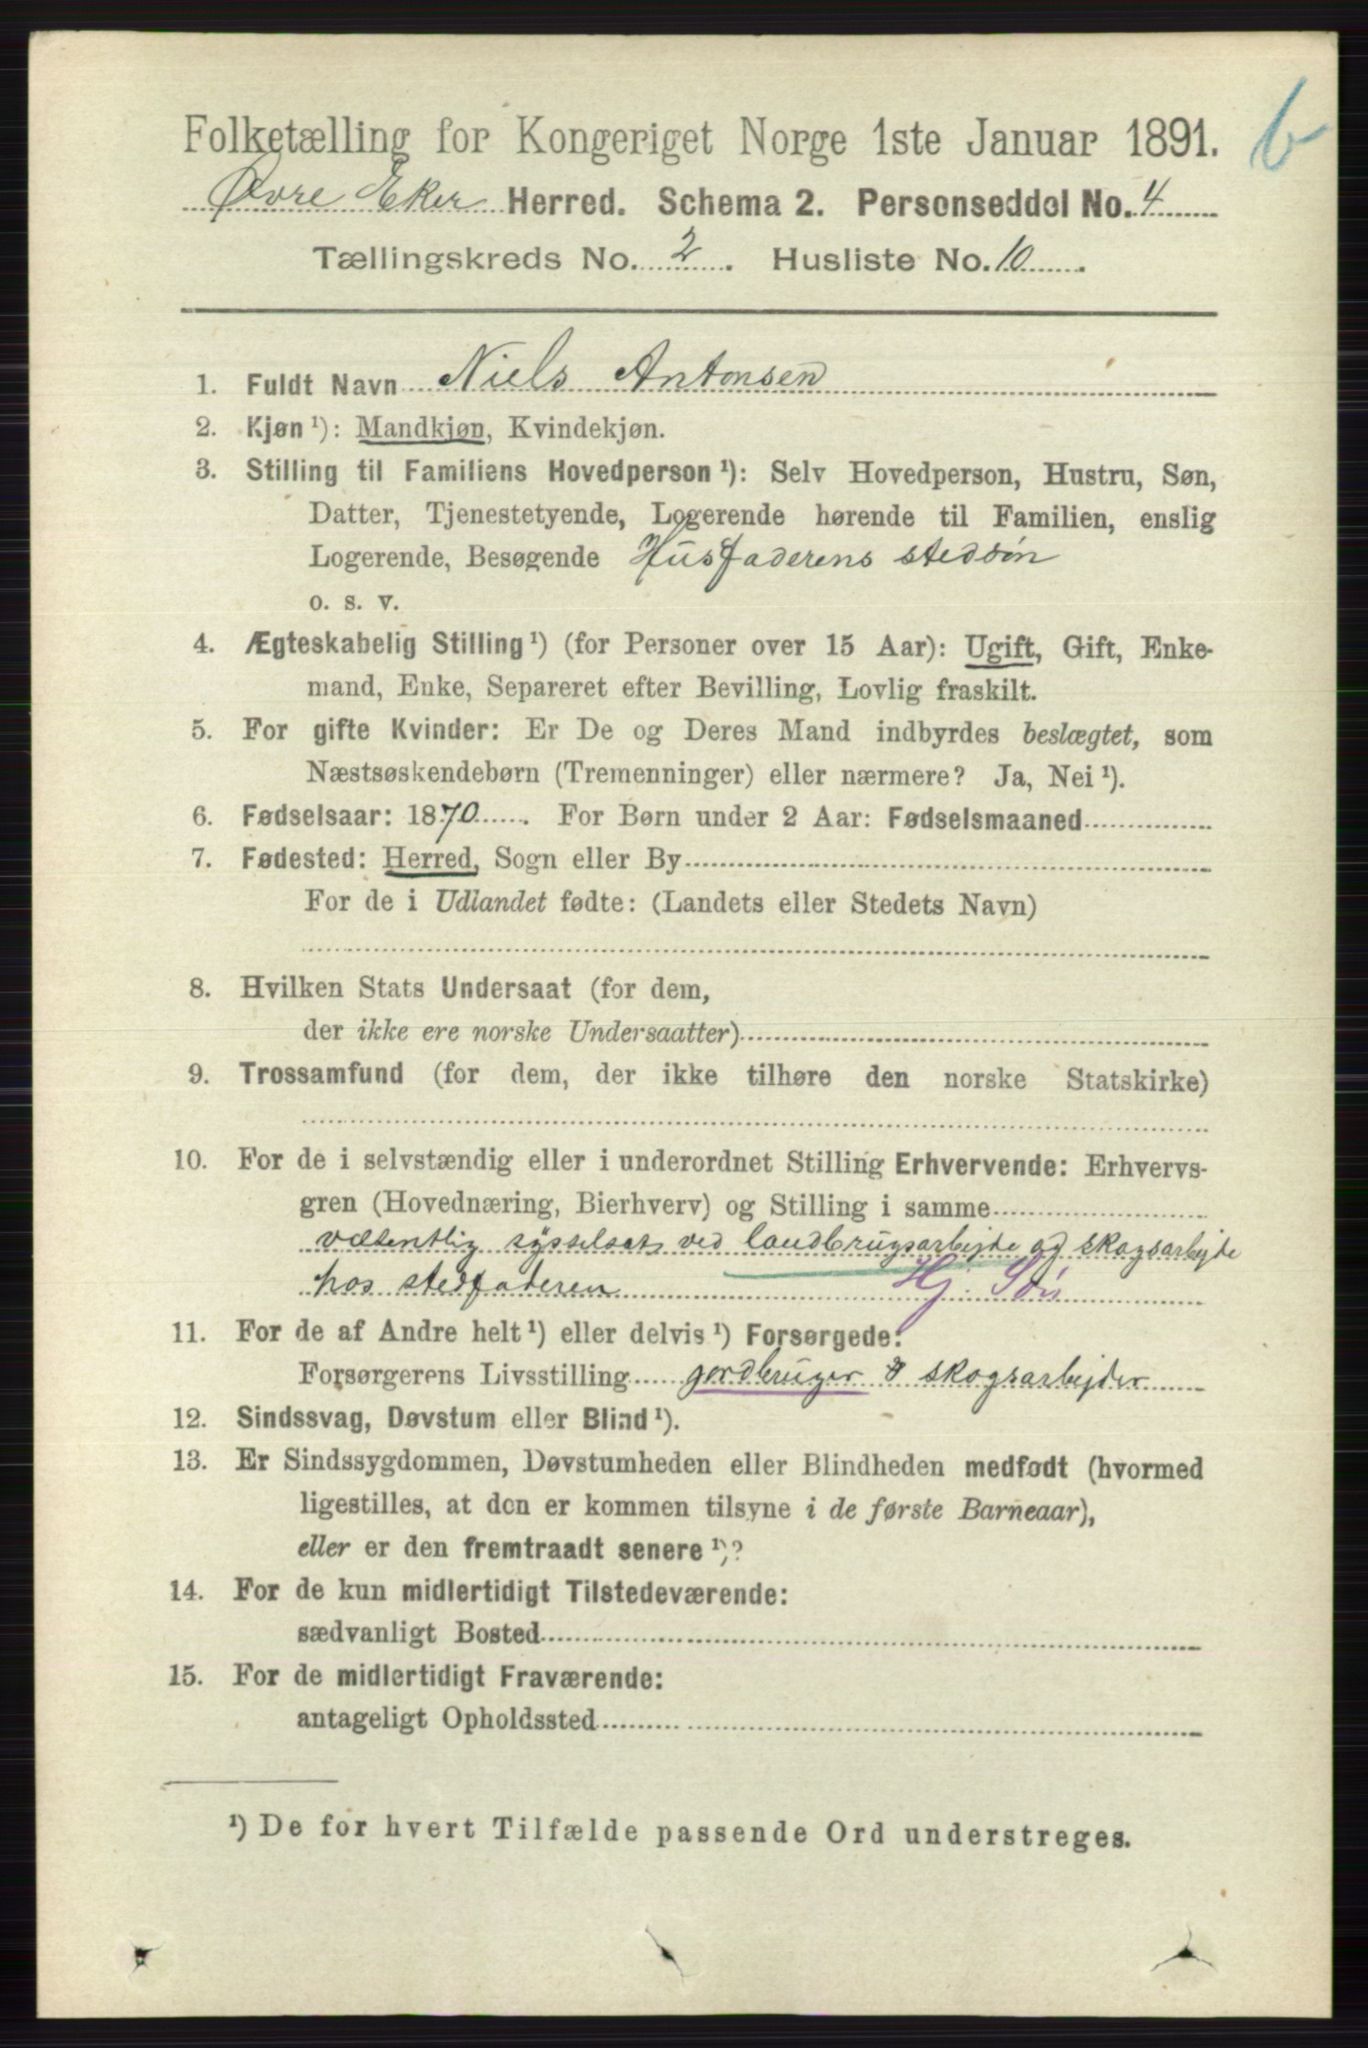 Folketælling for Kongeriget Norge 1ste Januar 1891.
b
Øvre Eker Herred. Schema 2. Personseddel No. 4
Tællingskreds No. 2. Husliste No. 10.
1. Fuldt Navn Niels Antonsen
2. Kjøn ¹): Mandkjøn, Kvindekjøn.
3. Stilling til Familiens Hovedperson ¹): Selv Hovedperson, Hustru, Søn,
Datter, Tjenestetyende, Logerende hørende til Familien, enslig
Logerende, Besøgende Husfaderens stedsøn
o. s. v.
4. Ægteskabelig Stilling ¹) (for Personer over 15 Aar): Ugift, Gift, Enke-
mand, Enke, Separeret efter Bevilling, Lovlig fraskilt.
5. For gifte Kvinder: Er De og Deres Mand indbyrdes beslægtet, som
Næstsøskendebørn (Tremenninger) eller nærmere? Ja, Nei ¹).
6. Fødselsaar: 1870. For Børn under 2 Aar: Fødselsmaaned
7. Fødested: Herred, Sogn eller By
For de i Udlandet fødte: (Landets eller Stedets Navn)
8. Hvilken Stats Undersaat (for dem,
der ikke ere norske Undersaatter)
9. Trossamfund (for dem, der ikke tilhøre den norske Statskirke)
10. For de i selvstændig eller i underordnet Stilling Erhvervende: Erhvervs-
gren (Hovednæring, Bierhverv) og Stilling i samme
væsentlig sysselsat ved landbrugsarbejde og skogsarbejde
hos stedfaderen Hj. Søn
11. For de af Andre helt ¹) eller delvis ¹) Forsørgede:
Forsørgerens Livsstilling gardbruger & skogsarbejder
12. Sindssvag, Døvstum eller Blind ¹).
13. Er Sindssygdommen, Døvstumheden eller Blindheden medfødt (hvormed
ligestilles, at den er kommen tilsyne i de første Barneaar),
eller er den fremtraadt senere ¹)?
14. For de kun midlertidigt Tilstedeværende:
sædvanligt Bosted
15. For de midlertidigt Fraværende:
antageligt Opholdssted
¹) De for hvert Tilfælde passende Ord understreges.